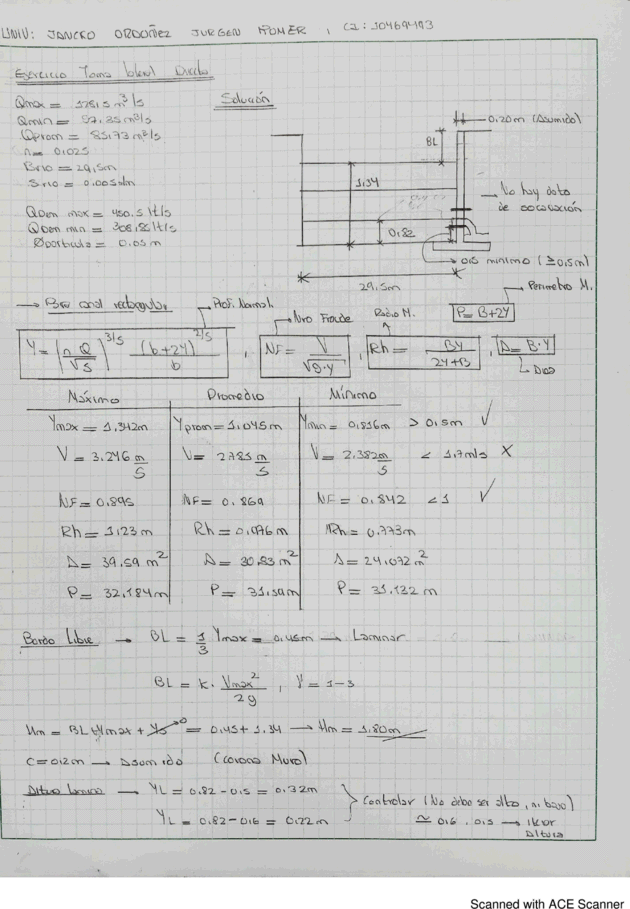 UNIV: JANCKO ORDOÑEZ JURGEN ROMER , CI: 10469493
Ejercicio Toma lateral Directa
Qmax = 128,5 m³/s
Solución
Qmin = 57,35 m³/s
Qprom = 85,73 m³/s
n = 0,025
Brio = 29,5m
Srio = 0,005 m/m
QDem max = 450,5 lt/s
QDem min = 308,85 lt/s
Øparticula = 0,05 m
0,20m (Asumido)
BL
1,34
No hay dato de socavación
0,82
0,5 minimo (≥0,5m)
29,5m
→ Para canal rectangular
Prof. Normal
Nro Froude
Radio M.
Perimetro M.
P = B+2Y
Y = (n Q / √S)^3/5 (b+2Y)^2/5 / b , NF = V / √g·y , Rh = BY / 2Y+B , A = B·Y
Area
Máximo Promedio Mínimo
Ymax = 1,342m Yprom = 1,045m Ymin = 0,816m > 0,5m ✓
V = 3,246 m/s V = 2,781 m/s V = 2,382 m/s < 1,7m/s X
NF = 0,895 NF = 0,869 NF = 0,842 < 1 ✓
Rh = 1,23 m Rh = 0,976 m Rh = 0,773m
A = 39,59 m² A = 30,83 m² A = 24,072 m²
P = 32,184m P = 31,59m P = 31,132 m
Bordo Libre → BL = 1/3 Ymax = 0,45m → Laminar
BL = k · Vmax² / 2g , Y = 1-3
Hm = BL + Ymax + Ys⁰ = 0,45 + 1,34 → Hm = 1,80m
C = 0,2m → Asumido (corona Muro)
Altura lamina → YL = 0,82 - 0,5 = 0,32m
YL = 0,82 - 0,6 = 0,22m
Controlar (No debe ser alto, ni bajo)
≃ 0,6 . 0,5 →
Altura
Scanned with ACE Scanner